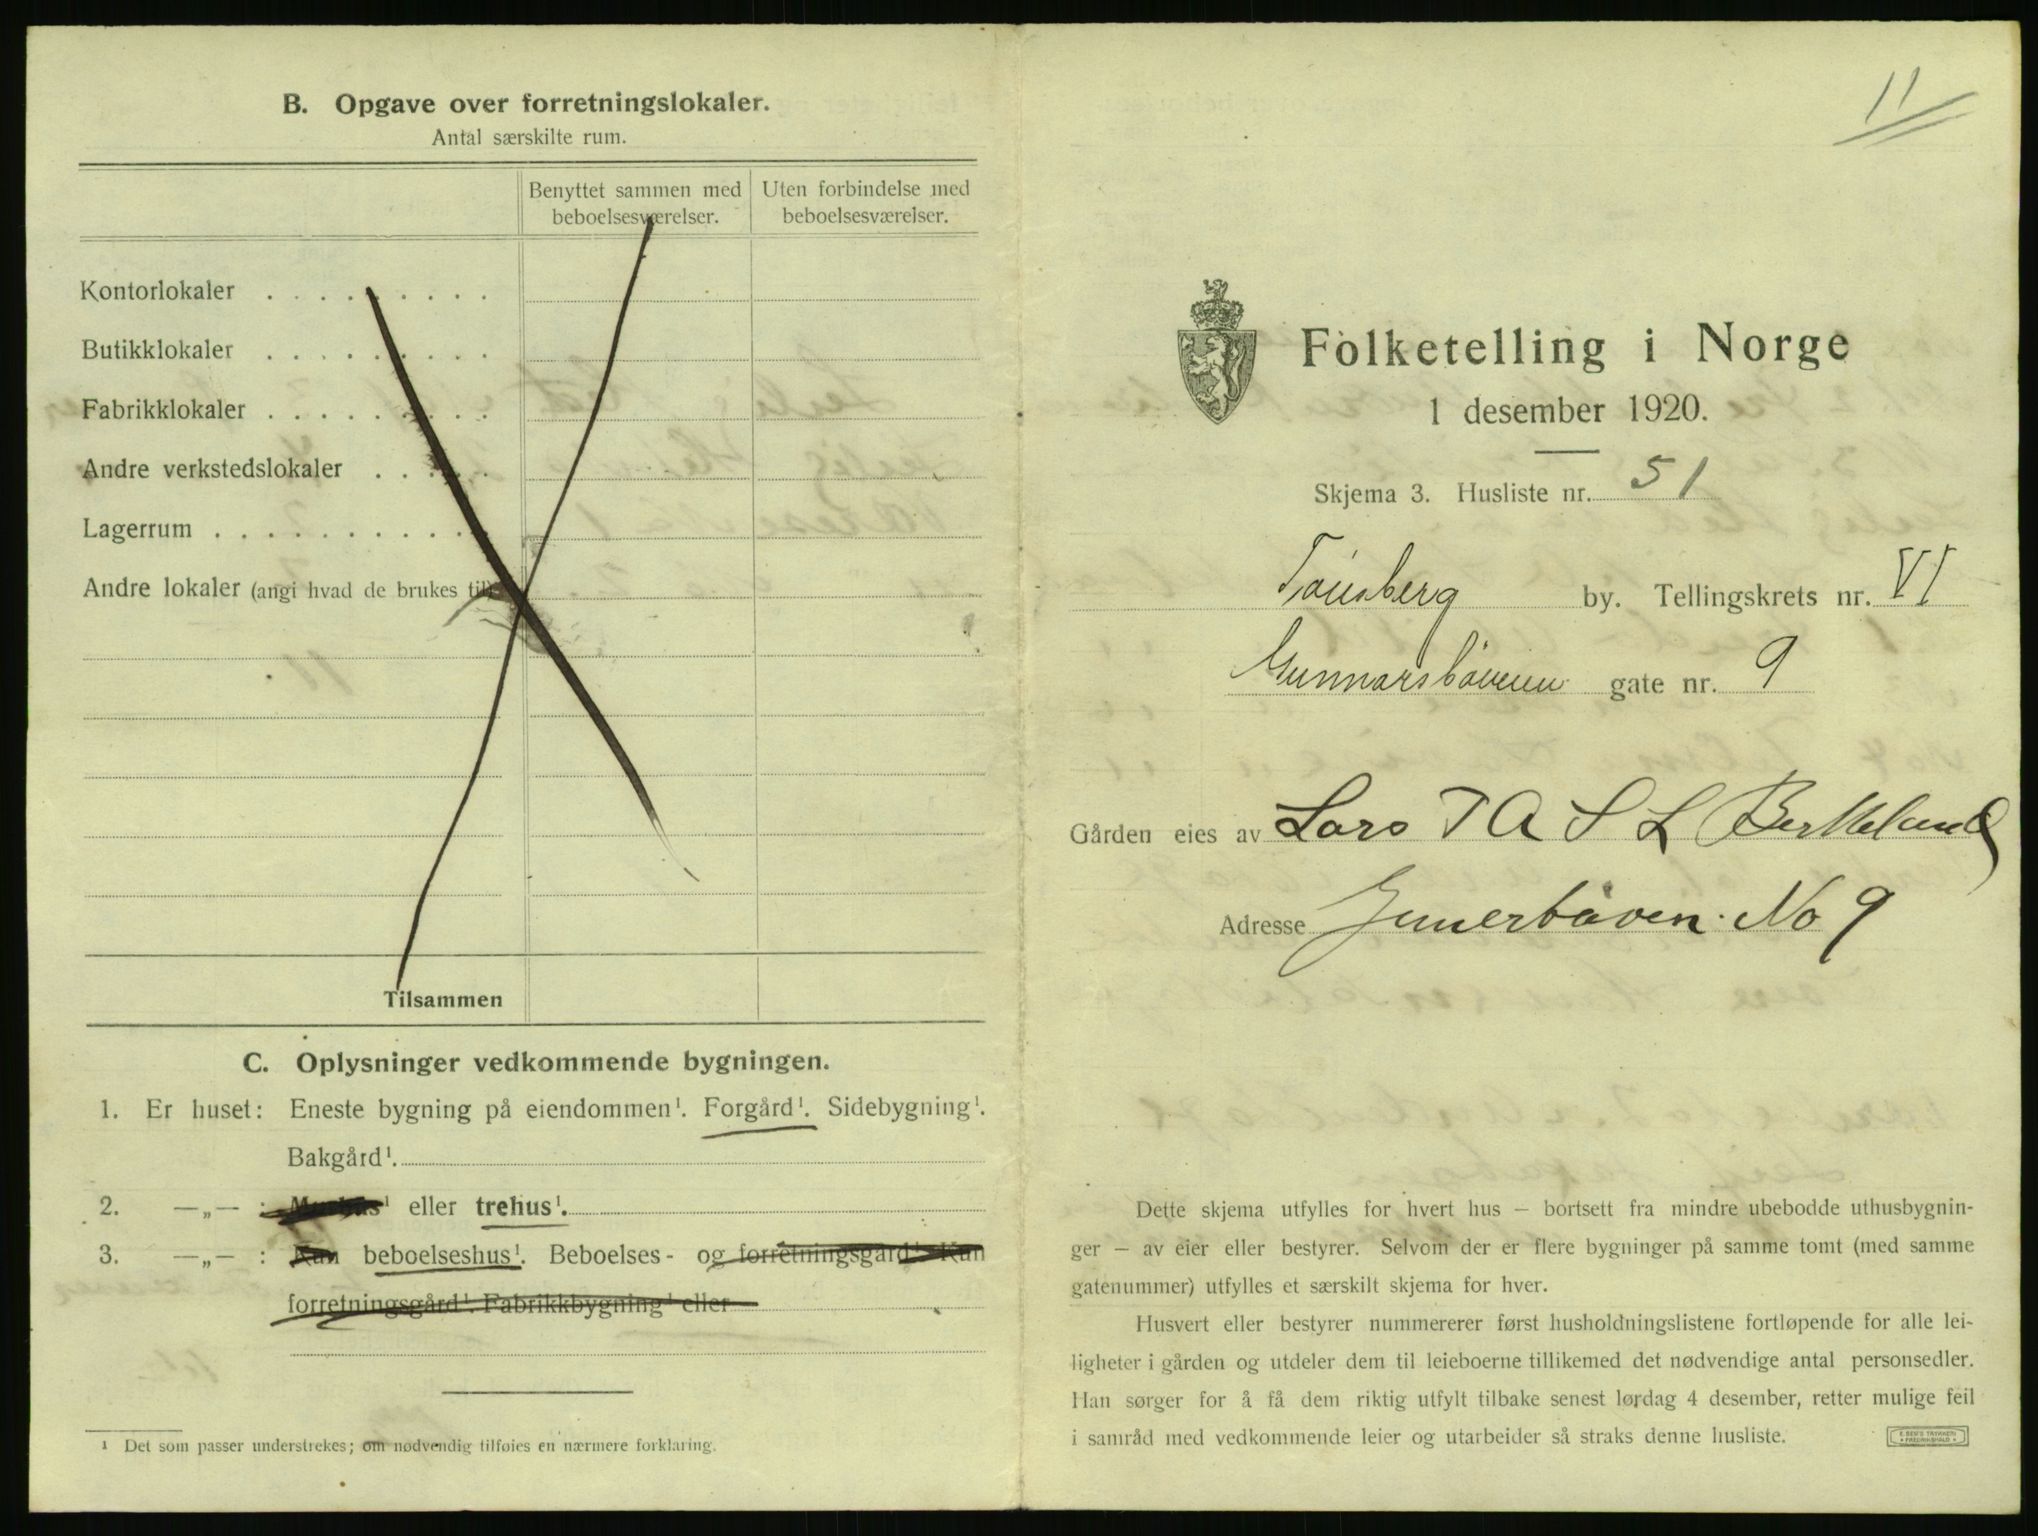 B. Opgave over forretningslokaler.
Antal særskilte rum.
Benyttet sammen med beboelsesværelser.
Uten forbindelse med beboelsesværelser.
Kontorlokaler . . . . . . . . .
Butikklokaler . . . . . . . . .
Fabrikklokaler . . . . . . . . .
Andre verkstedslokaler . . . . .
Lagerrum . . . . . . . . . . .
Andre lokaler (angi hvad de brukes til)
Tilsammen
C. Oplysninger vedkommende bygningen.
1. Er huset: Eneste bygning på eiendommen¹. Forgård¹. Sidebygning¹.
Bakgård¹.
2. —„— : Murhus¹ eller trehus¹.
3. —„— : Kun beboelseshus¹. Beboelses- og forretningsgård¹. Kun
forretningsgård¹. Fabrikkbygning¹ eller
¹ Det som passer understrekes; om nødvendig tilføies en nærmere forklaring.
11
Folketelling i Norge
1 desember 1920.
Skjema 3. Husliste nr. 51
Tønsberg by. Tellingskrets nr. VI
Gunnarsbøveien gate nr. 9
Gården eies av Lars T A S L Berkeland
Adresse Gunerbøven. No 9
Dette skjema utfylles for hvert hus – bortsett fra mindre ubebodde uthusbygnin-
ger – av eier eller bestyrer. Selvom der er flere bygninger på samme tomt (med samme
gatenummer) utfylles et særskilt skjema for hver.
Husvert eller bestyrer nummererer først husholdningslistene fortløpende for alle lei-
ligheter i gården og utdeler dem til leieboerne tillikemed det nødvendige antal personsedler.
Han sørger for å få dem riktig utfylt tilbake senest lørdag 4 desember, retter mulige feil
i samråd med vedkommende leier og utarbeider så straks denne husliste.
E. SEM'S TRYKKERI
FREDRIKSHALD